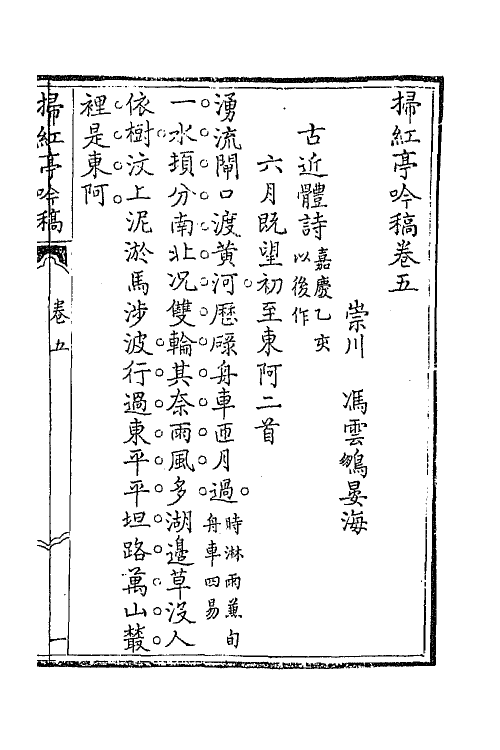 掃紅亭吟稿卷五
崇川　馮雲鵷晏海
古近體詩嘉慶乙亥以後作
六月既望初至東阿二首
湧流閘口渡黃河歷碌舟車匝月過時淋雨兼旬舟車四易
一水㨂分南北况雙輪其奈雨風多湖邊草沒人
依樹汶上泥淤馬涉波行過東平平坦路萬山叢
裡是東阿
掃紅亭吟稿
卷五